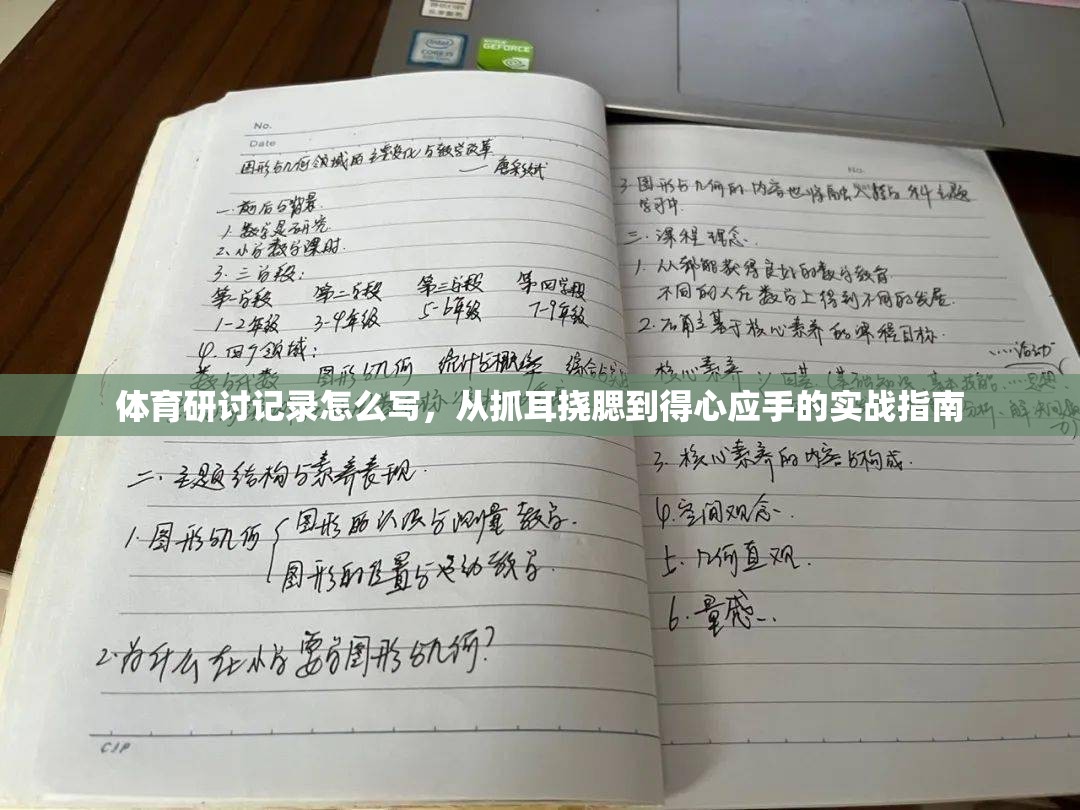 intel
CORE i5
GEFORCE
No.
Date
图形与几何领域的主要变化与教学改革
一、前后与背景
1. 教学是研究
2. 小学数学课时
3. 三学段:
第一学段 第二学段 第三学段 第四学段
1-2年级 3-4年级 5-6年级 7-9年级
4. 四个领域:
数与代数 图形与几何 统计与概率 综合与实践
体育研讨记录怎么写，从抓耳挠腮到得心应手的实战指南
二、主题结构与素养表现.
1. 图形与几何 图形的认识与测量 教学.
图形的位置与运动教学.
2. 为什么在小学要学图形与几何?
CIP
No.
3. 图形与几何的内容也将融入 主题
学习中.
三、课程理念.
1. 人人都能获得良好的数学教育
不同的人在数学上得到不同的发展.
2. 基于核心素养的课程目标.
……活动
核心素养
3. 核心素养的内容与构成.
4. 空间观念.
5. 几何直观.
6. 量感.